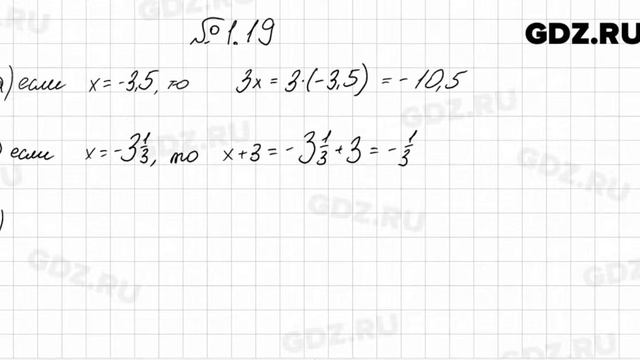 №1.19
GDZ.RU
а) если x = -3,5, то 3x = 3·(-3,5) = -10,5
) если x = -3 1/3, то x+3 = -3 1/3 + 3 = -1/3
)
GDZ.RU
GDZ.RU
GDZ.RU
GDZ.RU
GDZ.RU
GDZ.RU
GDZ.RU